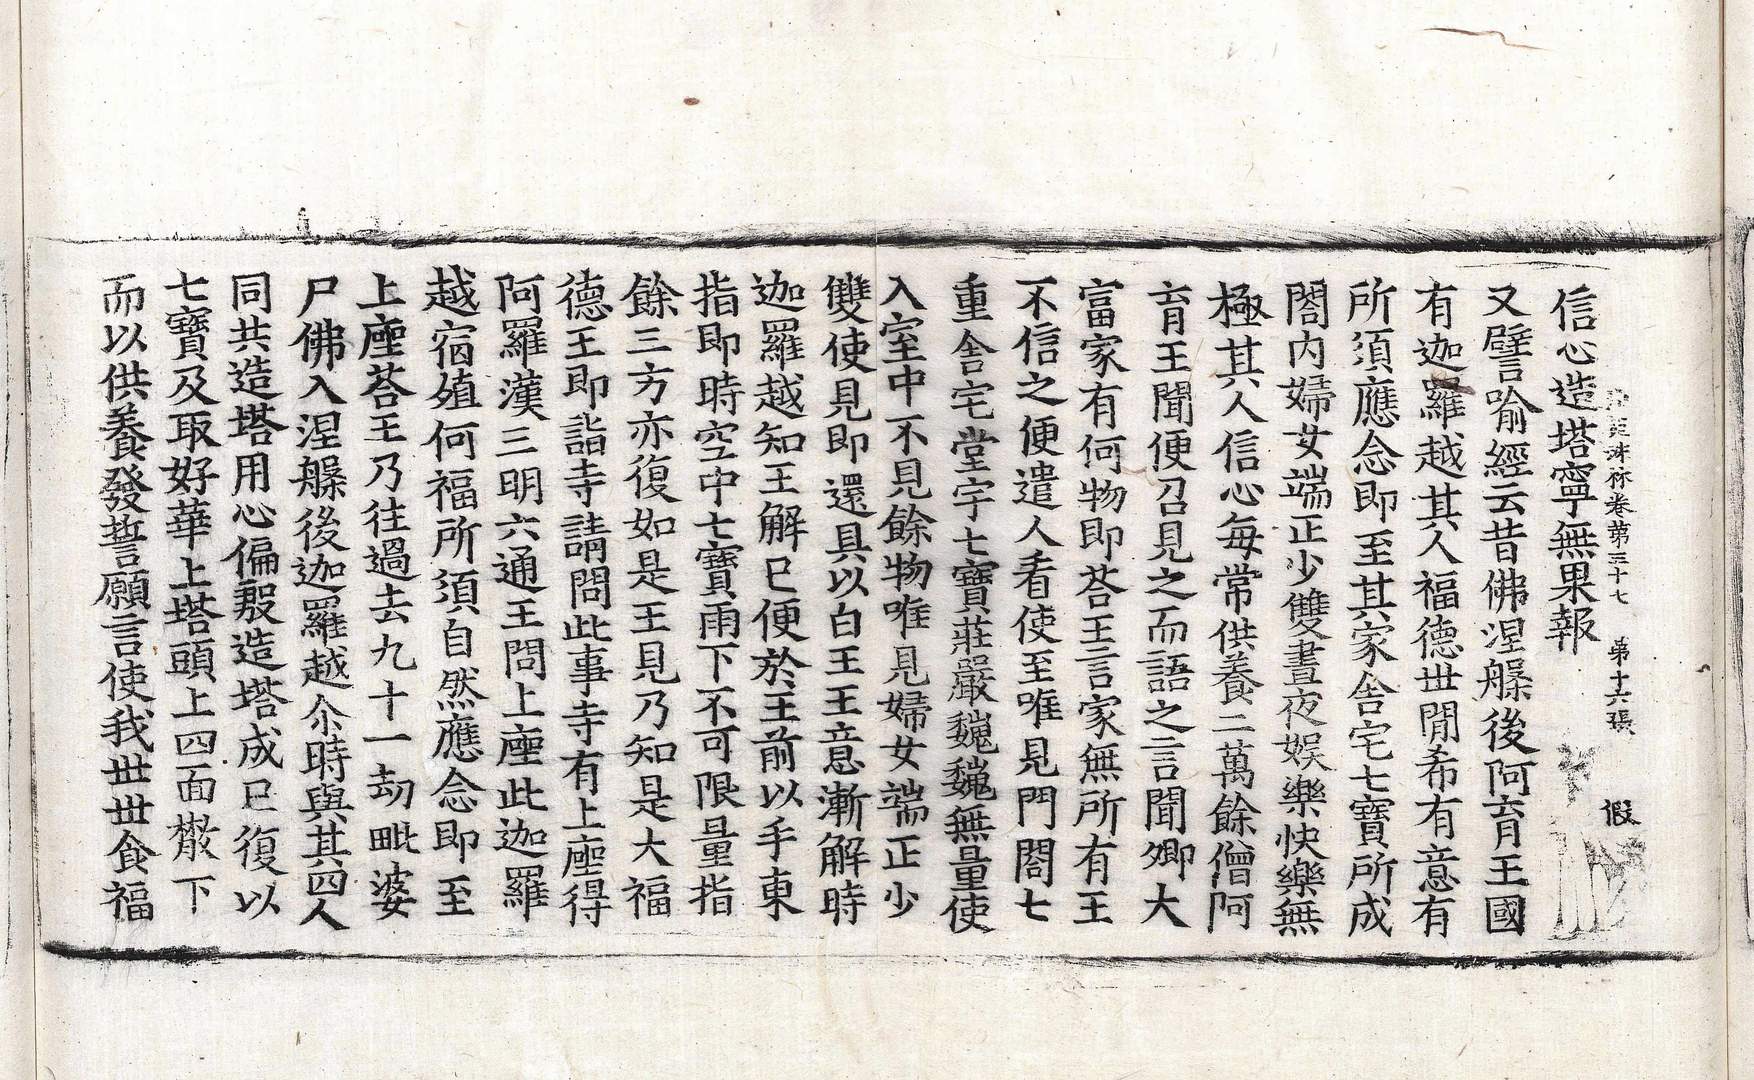 苑珠林卷第三十七 第十六張 假
信心造塔寧無果報
又譬喻經云昔佛涅槃後阿育王國
有迦羅越其人福德世間希有意有
所須應念即至其家舍宅七寶所成
閤内婦女端正少雙晝夜娛樂快樂無
極其人信心每常供養二萬餘僧阿
育王聞便召見之而語之言聞卿大
富家有何物即荅王言家無所有王
不信之便遣人看使至唯見門閤七
重舍宅堂宇七寶莊嚴巍巍無量使
入室中不見餘物唯見婦女端正少
雙使見即還具以白王王意漸解時
迦羅越知王解已便於王前以手東
指即時空中七寶雨下不可限量指
餘三方亦復如是王見乃知是大福
德王即詣寺請問此事寺有上座得
阿羅漢三明六通王問上座此迦羅
越宿殖何福所須自然應念即至
上座荅王乃往過去九十一劫毗婆
尸佛入涅槃後迦羅越尒時與其四人
同共造塔用心偏殷造塔成已復以
七寶及取好華上塔頭上四面散下
而以供養發誓願言使我世世食福